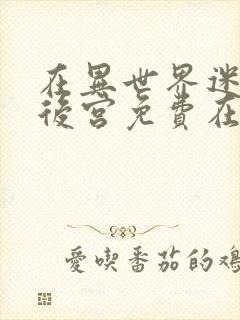 在異世界迷
後宮免費在
愛喫番茄的雞